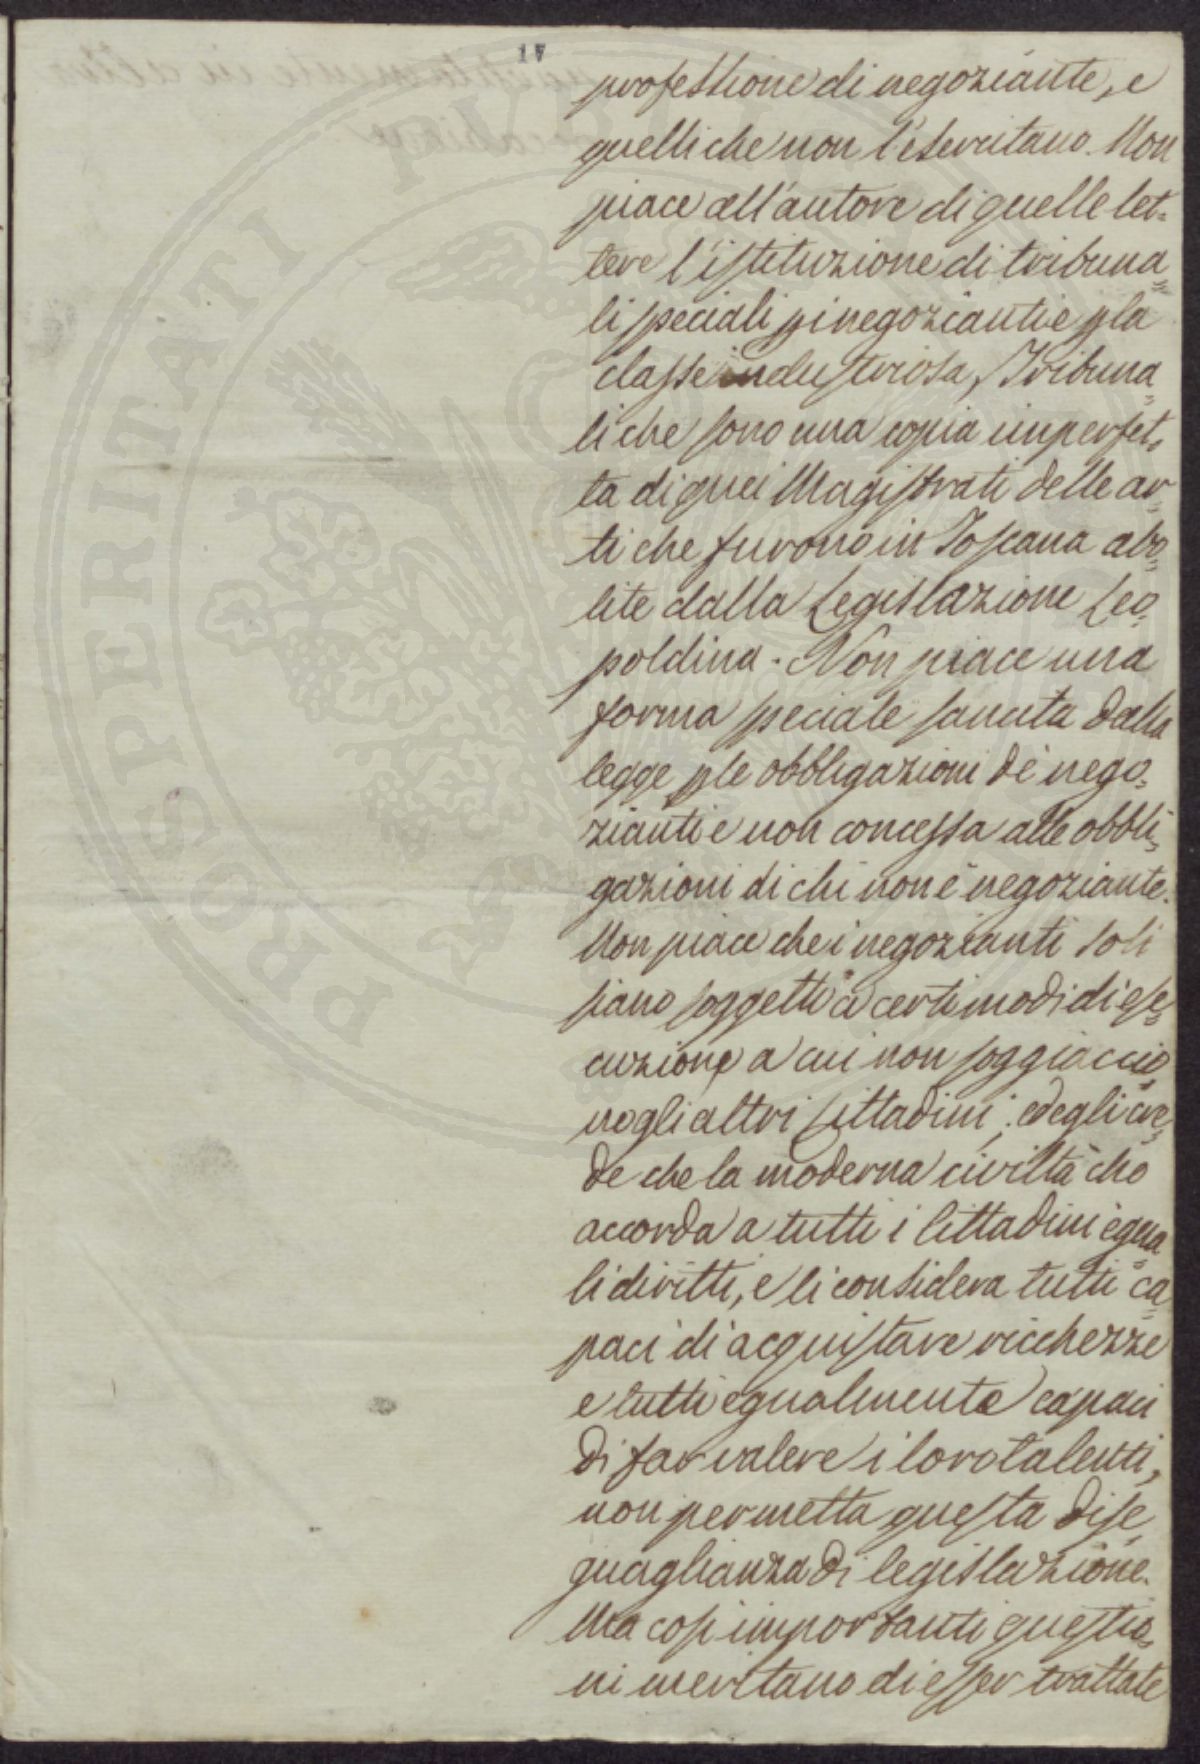 1V
professione di negoziante, e
quelli che non l'esercitano. Non
piace all'autore di quelle let=
tere l'istituzione di tribuna=
li speciali pi negozianti e pla
classe industriosa, Tribuna=
li che sono una copia imperfet=
ta di quei Magistrati delle ar=
ti che furono in Toscana abo=
lite dalla Legislazione Leo=
poldina. Non piace una
forma speciale sancita dalla
legge ple obbligazioni de' nego=
zianti e non concessa alle obbli=
gazioni di chi non è negoziante.
Non piace che i negozianti soli
siano soggetti a certi modi di ese=
cuzione a cui non soggiaccio=
no gli altri Cittadini; ed egli cre=
de che la moderna civiltà che
accorda a tutti i Cittadini egua=
li diritti, e li considera tutti ca=
paci di acquistare ricchezze
e tutti egualmente capaci
di far valere i loro talenti,
non permetta questa dise=
guaglianza di legislazione.
Ma così importanti questio=
ni meritano di esser trattate
PROSPERITATI